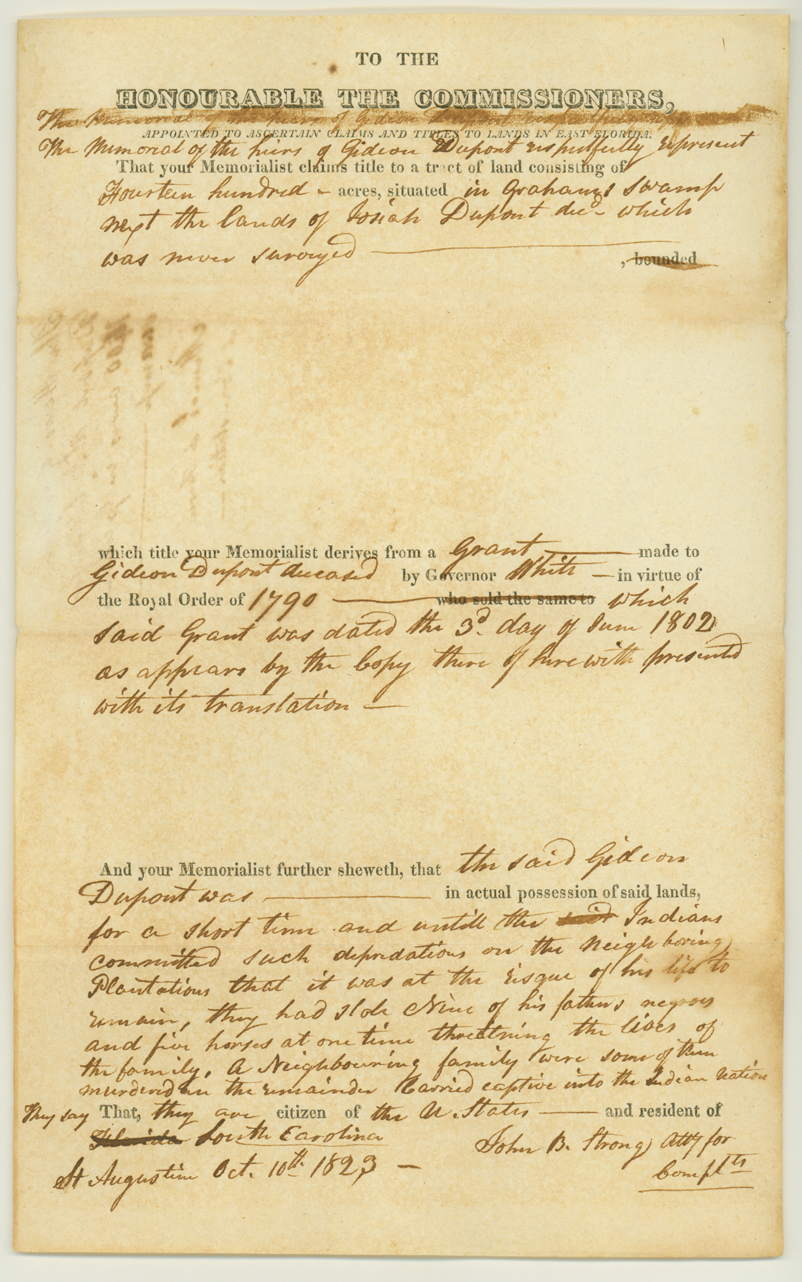 TO THE
HONOURABLE THE COMMISSIONERS,
The Memorial of the heirs of Gideon Dupont respectfully represent
APPOINTED TO ASCERTAIN CLAIMS AND TITLES TO LANDS IN EAST FLORIDA.
The Memorial of the heirs of Gideon Dupont respectfully represent
That your Memorialist claims title to a tract of land consisting of
Fourteen hundred – acres, situated in Grahams Swamp
next the lands of Josiah Dupont decd which
was never surveyed — , bounded
which title your Memorialist derives from a Grant — made to
Gideon Dupont deceased by Governor White — in virtue of
the Royal Order of 1790 — who sold the same to which
said Grant was dated the 3d. day of June 1802
as appears by the Copy there of herewith presented
with its translation —
And your Memorialist further sheweth, that the said Gideon
Dupont was — in actual possession of said lands,
for a short time and untill the said Indians
committed such depredations on the Neighboring
Plantations that it was at the risque of his life to
remain, they had stole Nine of his fathers negroes
and five horses at one time threatning the lives of
the family. A Neighbouring family were some of them
murdered in the remainder Carried captive into the Indian Nation
They say That, they are citizen of the U. States — and resident of
Florida South Carolina
John B. Strong Atty for
St Augustine Oct. 10th 1823 —
Complts